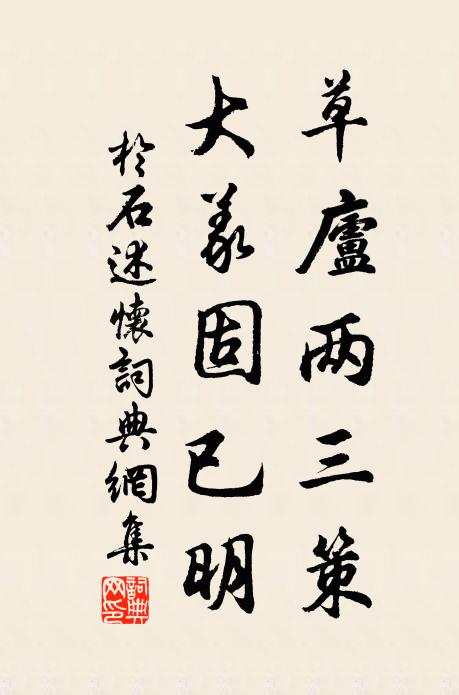 草廬两三策
大義固已明
於石述懷詞典網集
詞典网印